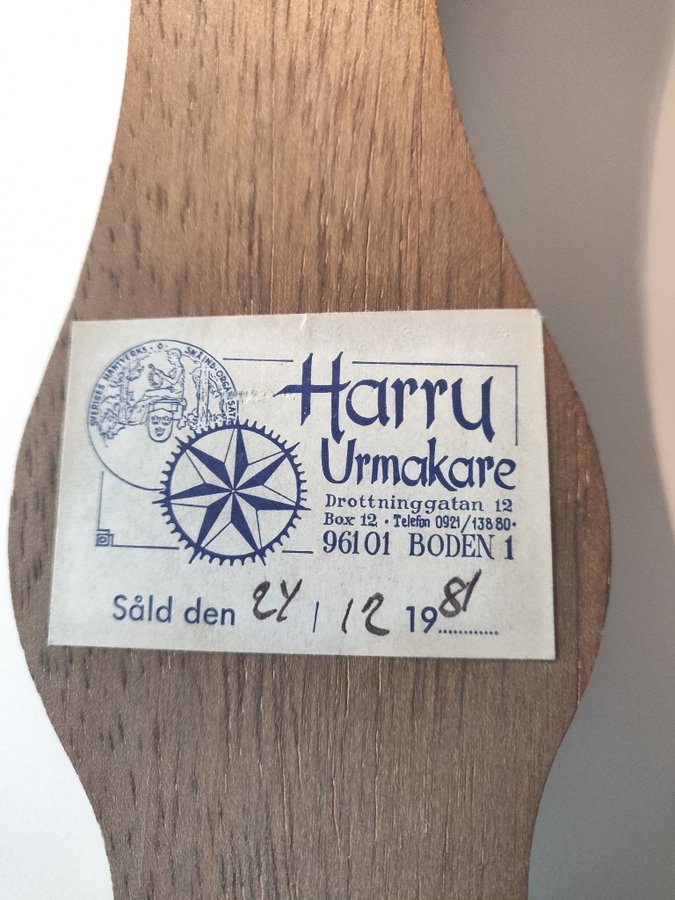 SVERIGES HANTVERKS · O · SMÅIND·ORGANISATION
Harry
Urmakare
Drottninggatan 12
Box 12 · Telefon 0921/138 80 ·
961 01 BODEN 1
Såld den 24 / 12 1981